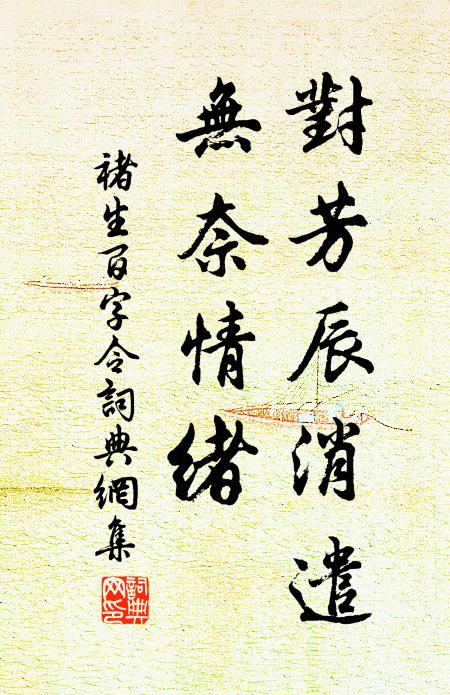 對芳辰消遣
無奈情緒
褚生百字令詞典網集
詞典網印